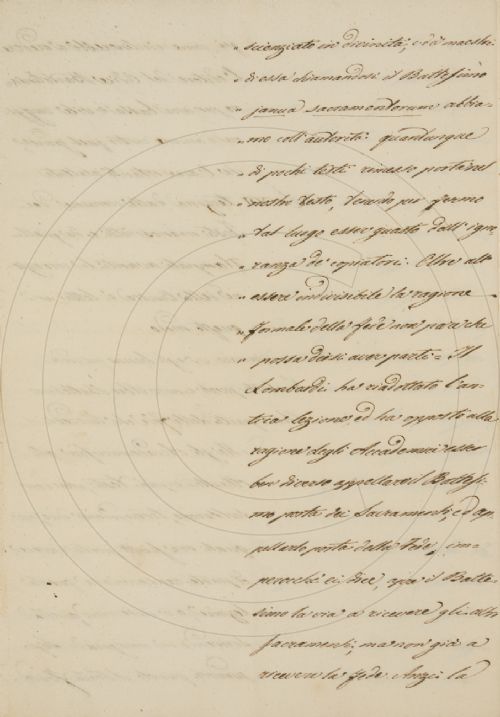 " scienziato in divinità, e da maestri
" di essa chiamandosi il Battesimo
" janua sacramentorum abbia-
" mo coll'autorità quantunque
" di pochi testi rimesso porta nel
" nostro testo, tenendo per fermo
" tal luogo esser guasto dall'igno
" ranza de' copiatori. Oltre all'
" essere indivisibile la ragione
" formale della fede non pare che
" possa dirsi aver parti = Il
Lombardi ha riadottato l'an-
tica lezione, ed ha opposto alla
ragione degli Accademici esser
ben diverso appellare il Battesi-
mo porta dei Sacramenti, ed ap
pellarlo porta della Fede, im-
perocchè ei dice, apre il Batte-
simo la via a ricevere gli altri
Sacramenti, ma non già a
ricevere la fede. Anzi la